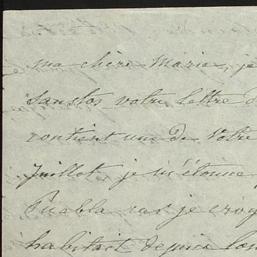 ma chère Marie, je
sanstos votre lettre
contient un de votre
juillet je m'étonne
Puebla car je croy
habitait depuis lon